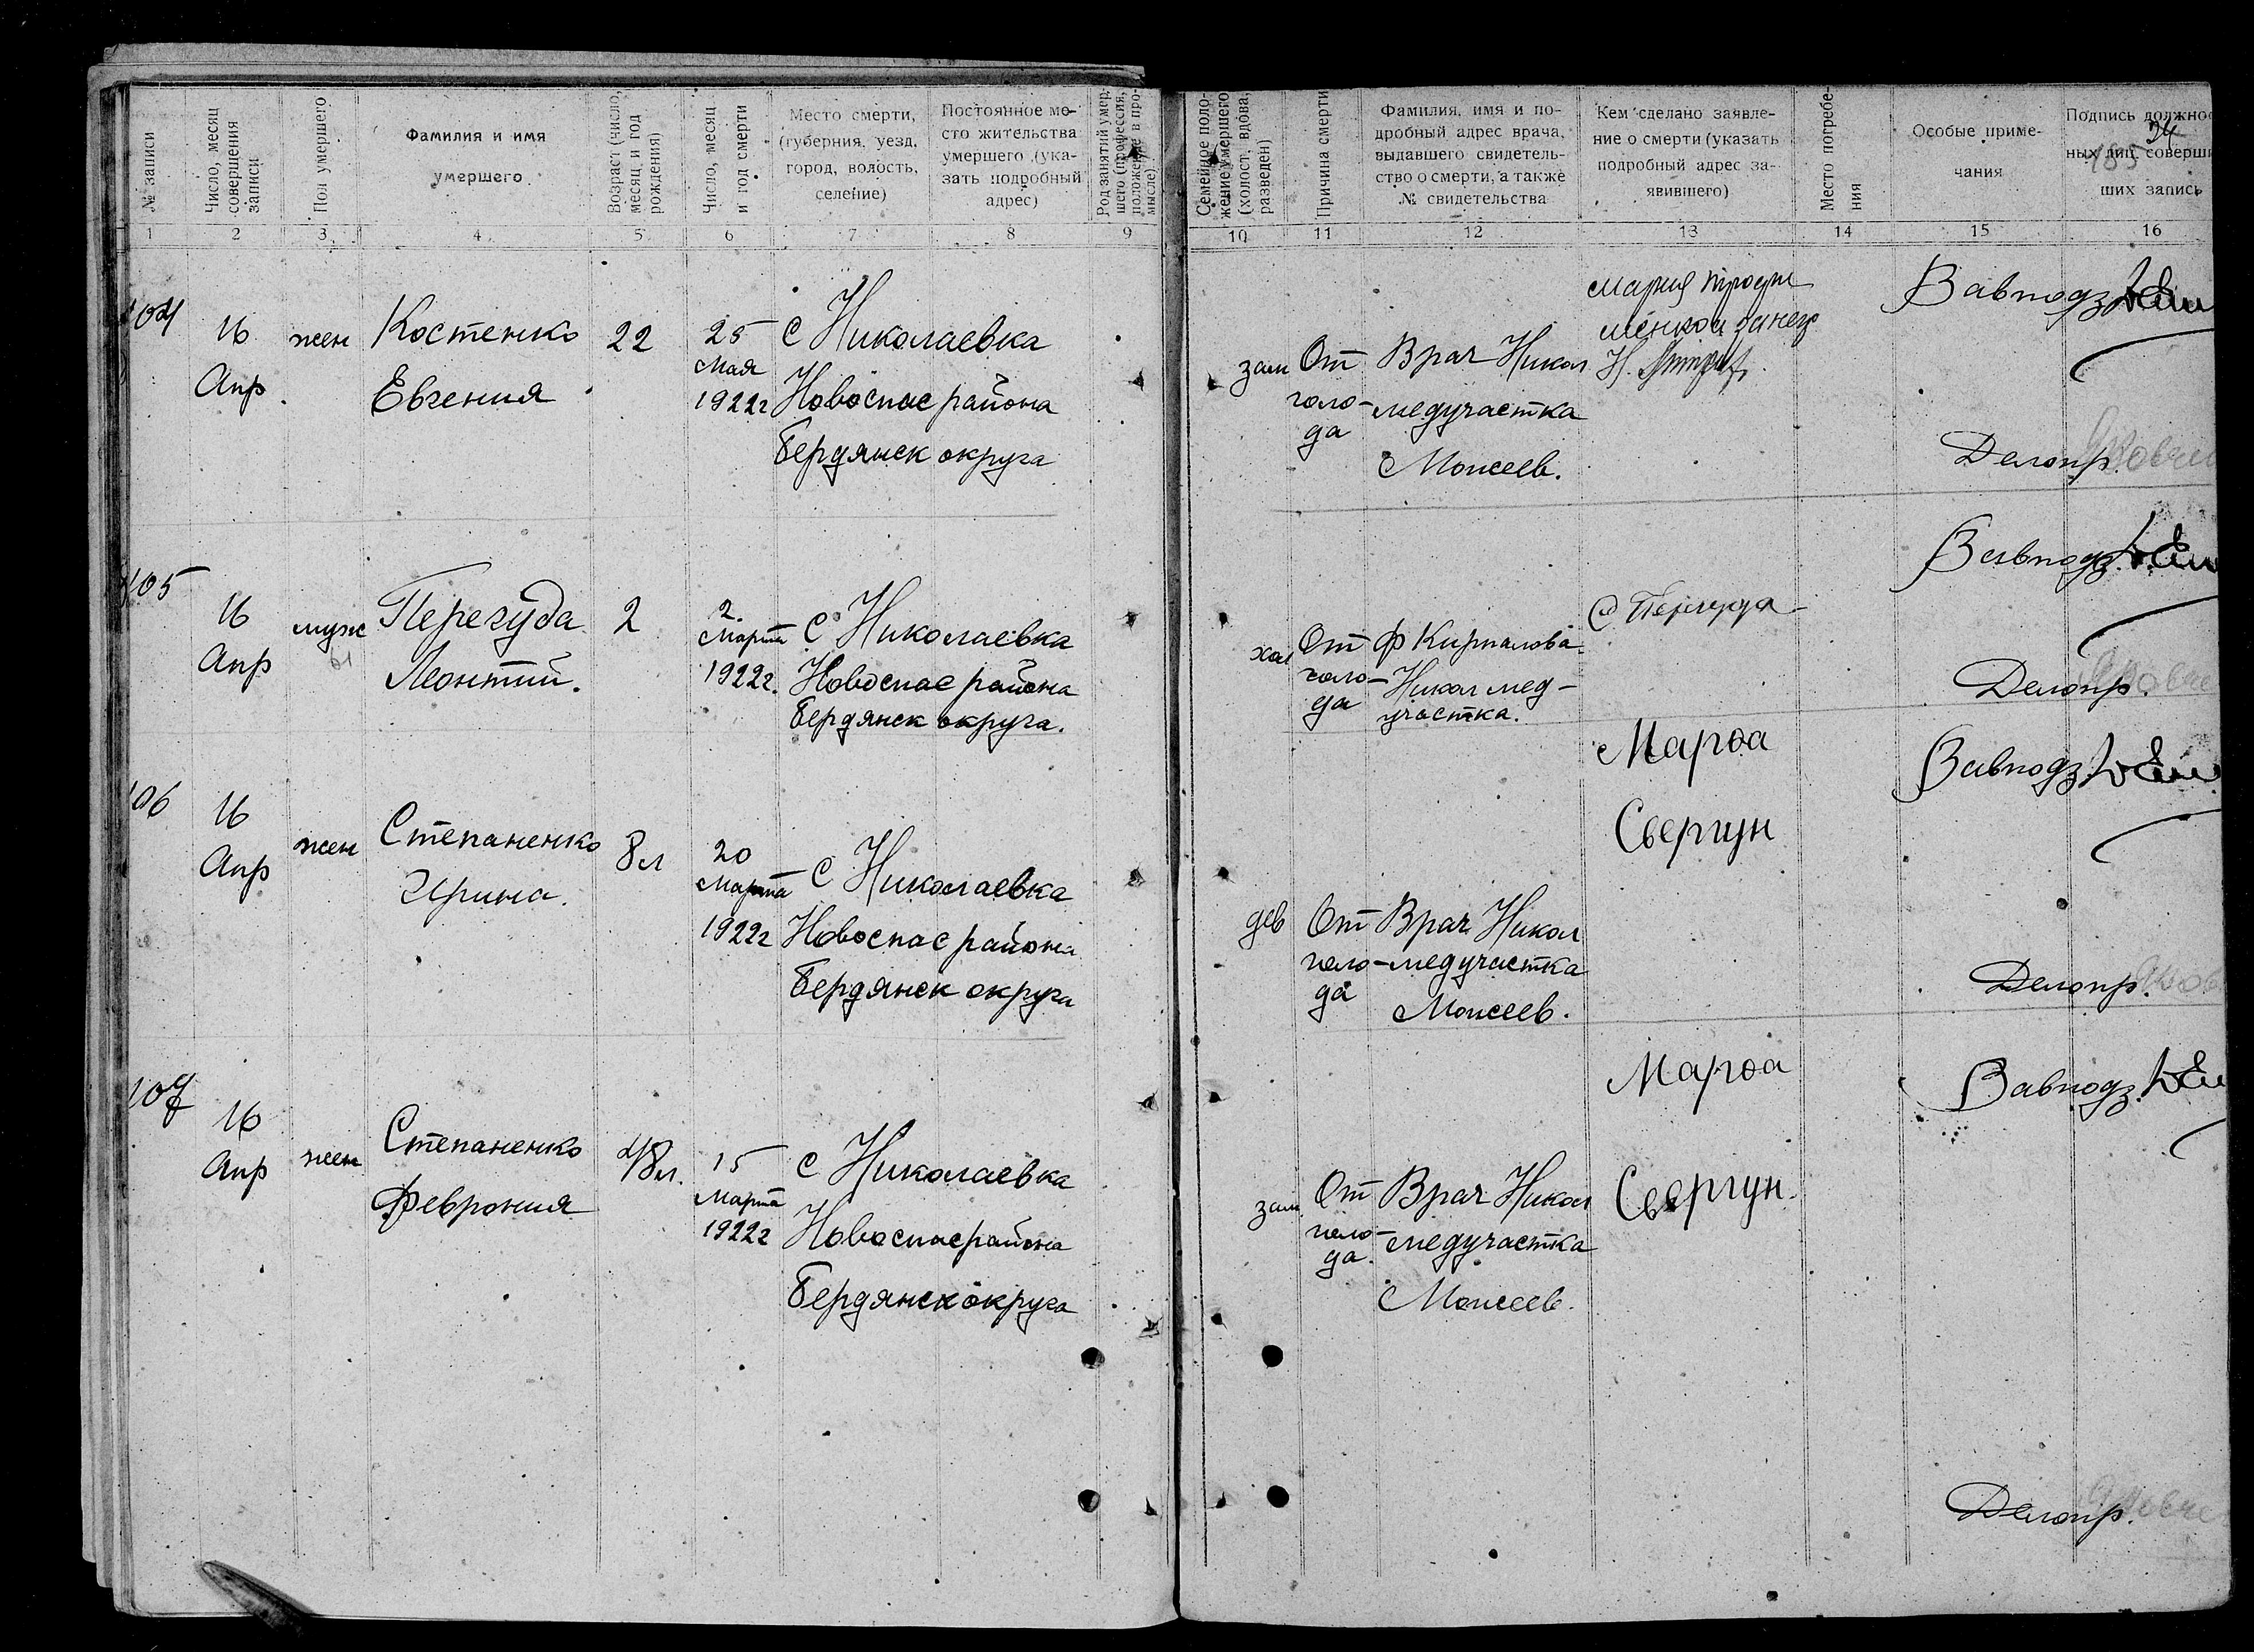 № записи
Число, месяц
совершения
записи
Пол умершего
Фамилия и имя
умершего
Возраст (число,
месяц и год
рождения)
Число, месяц
и год смерти
Место смерти,
(губерния, уезд,
город, волость,
селение)
Постоянное ме-
сто жительства
умершего (ука-
зать подробный
адрес)
Род занятий умер-
шего (профессия,
положение в про-
мысле)
Семейное поло-
жение умершего
(холост, вдова,
разведен)
Причина смерти
Фамилия, имя и по-
дробный адрес врача,
выдавшего свидетель-
ство о смерти, а также
№ свидетельства
Кем сделано заявле-
ние о смерти (указать
подробный адрес за-
явившего)
Место погребе-
ния
Особые приме-
чания
Подпись должно
ных лиц, соверш
ших запись
1 2 3 4 5 6 7 8 9 10 11 12 13 14 15 16
104
16
Апр.
жен
Костенко
Евгения
22
25
мая
1922г
с Николаевка
Новоспас района
Бердянск округа
зам
От
голо-
да
Врач Никол
медучастка
Моисеев.
Мария
Завподз
Делопр.
105
16
Апр
муж
Перегуда
Леонтий.
2
2
марта
1922г.
с Николаевка
Новоспас района
Бердянск округа.
хол
От
голо-
да
Ф Кирпалова
Никол мед-
участка.
Перегуда
Завподз.
Делопр.
106
16
Апр
жен
Степаненко
Ирина.
8л
20
марта
1922г
с Николаевка
Новоспас района
Бердянск округа
дев
От
голо-
да
Врач Никол
медучастка
Моисеев.
Марѳа
Свергун
Завподз
Делопр.
107
16
Апр
жен
Степаненко
Феврония
48л.
15
марта
1922г
с Николаевка
Новоспас района
Бердянск округа
зам
От
голо-
да.
Врач Никол
медучастка
Моисеев.
Марѳа
Свергун.
Завподз.
Делопр.